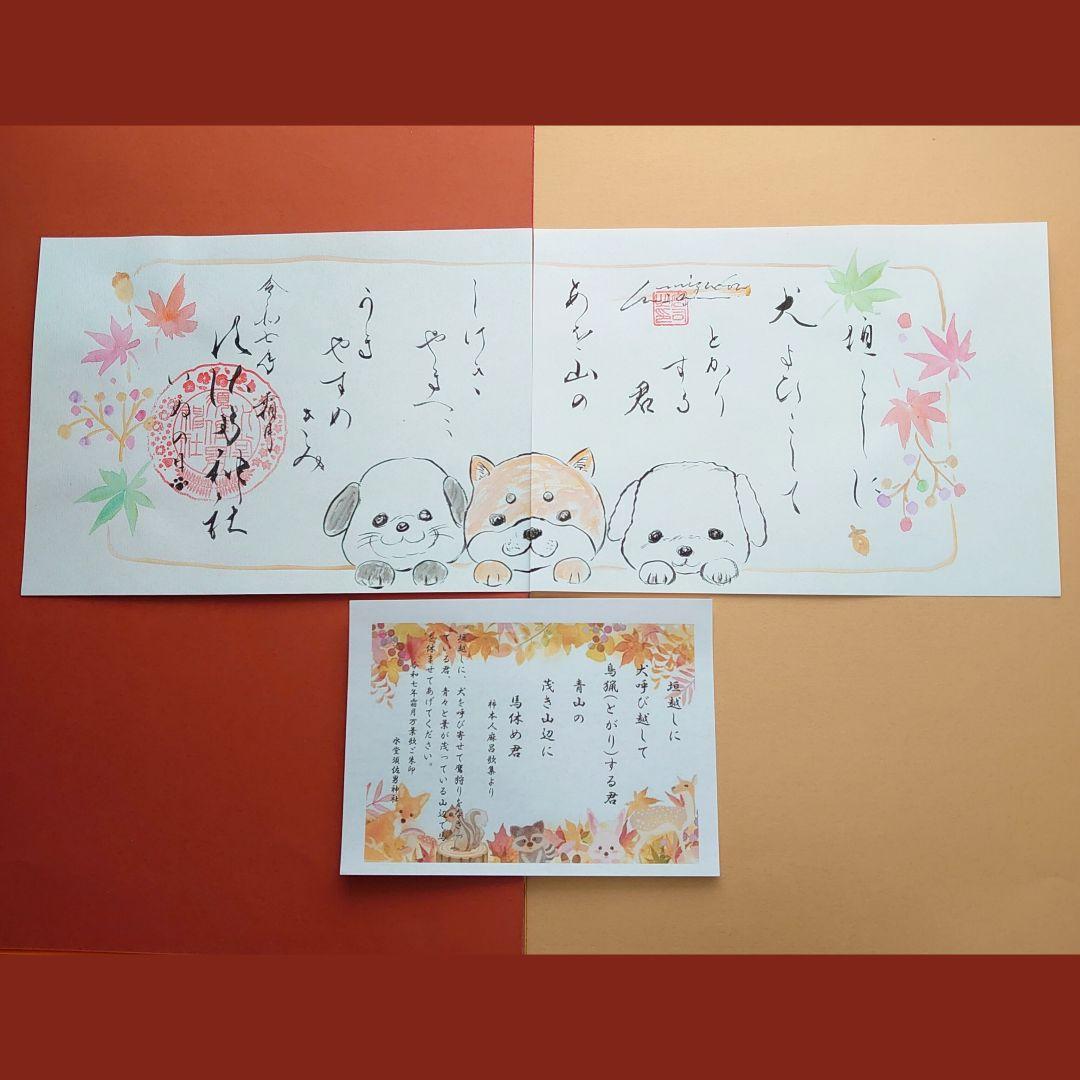 垣こしに
犬よひこして
とかり
する
君
あを山の
しけき
やまへに
うま
やすめ
きみ
令和七年
霜月
いぬの日
垣越しに
犬呼び越して
鳥猟(とがり)する君
青山の
茂き山辺に
馬休め君
柿本人麻呂歌集より
垣越しに、犬を呼び寄せて鷹狩りをなさっ
ている君、青々と葉が茂っている山辺で馬
を休ませてあげてください。
令和七年霜月万葉歌ご朱印
水堂須佐男神社